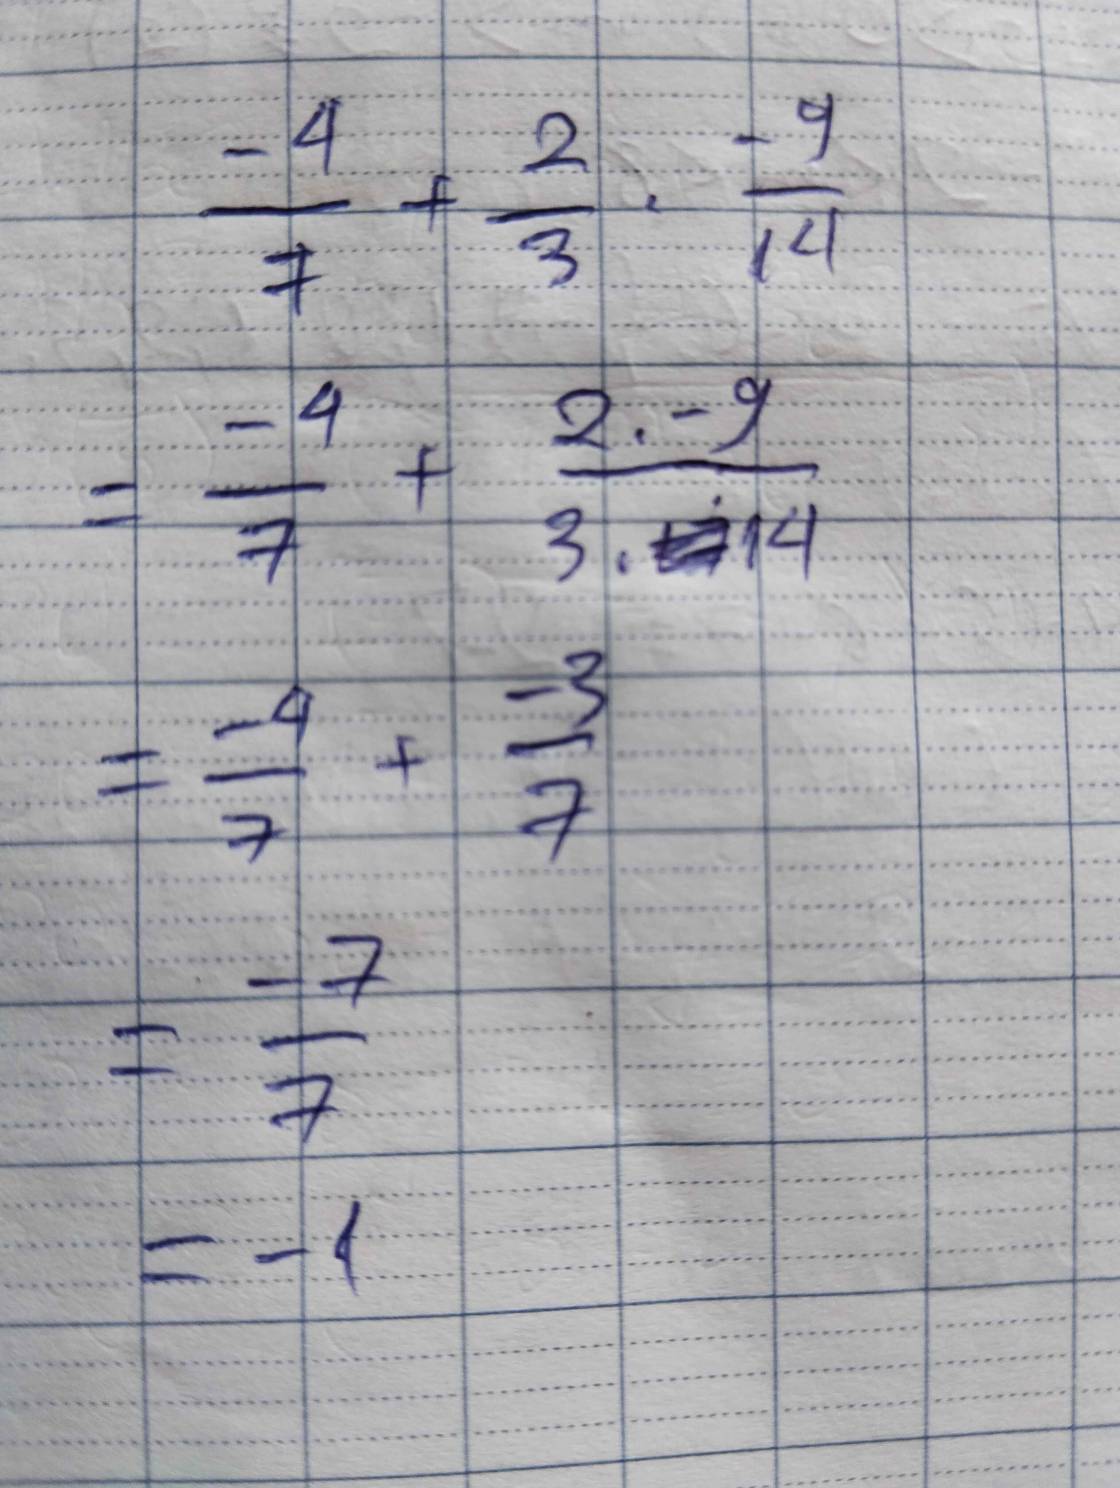 -4/7 + 2/3 . -9/14
= -4/7 + 2.-9/3.14
= -4/7 + -3/7
= -7/7
= -1